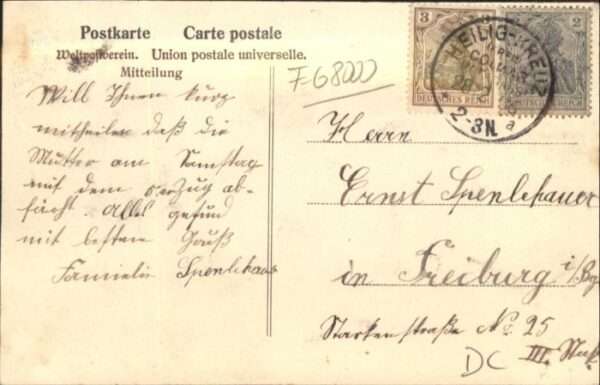 Postkarte Carte postale
Weltpostverein. Union postale universelle.
Mitteilung
F 68000
Will Ihnen kurz
mittheilen daß die
Mutter am Samstag
mit dem Zug ab-
fährt alles gesund
mit besten Gruß
Familie Spenlehauer
3
DEUTSCHES REICH
2
DEUTSCHES REICH
HEILIG-KREUZ
COLMAR
2-3N.
a
Herrn
Ernst Spenlehauer
in Freiburg i/Bg
Starkenstraße No. 25
III. Stock
DC